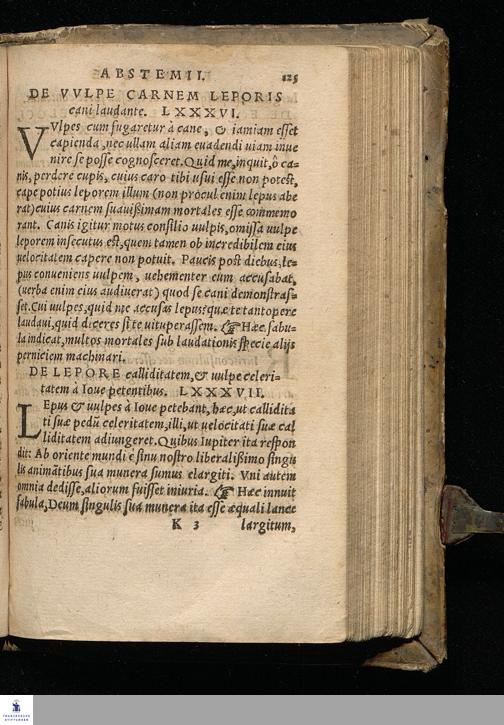 ABSTEMII. 125
DE VVLPE CARNEM LEPORIS
cani laudante. LXXXVI.
VVlpes cum fugaretur à cane, & iamiam esset
capienda, nec ullam aliam euadendi uiam inue
nire se posse cognosceret. Quid me, inquit, ô ca-
nis, perdere cupis, cuius caro tibi usui esse non potest,
cape potius leporem illum (non procul enim lepus abe
rat) cuius carnem suauißimam mortales esse commemo
rant. Canis igitur motus consilio uulpis, omissa uulpe
leporem insecutus est, quem tamen ob incredibilem eius
uelocitatem capere non potuit. Paucis post diebus, le-
pus conueniens uulpem, uehementer eum accusabat,
(uerba enim eius audiuerat) quod se cani demonstras-
set. Cui uulpes, quid me accusas lepus? quæ te tantopere
laudaui, quid diceres si te uituperassem. ☞ Hæc fabu-
la indicat, multos mortales sub laudationis specie alijs
perniciem machinari.
DE LEPORE calliditatem, & uulpe celeri-
tatem à Ioue petentibus. LXXXVII.
LEpus & uulpes à Ioue petebant, hæc, ut callidita
ti suæ pedũ celeritatem, illi, ut uelocitati suæ cal
liditatem adiungeret. Quibus Iupiter ita respon
dit: Ab oriente mundi è sinu nostro liberalißimo singu
lis animãtibus sua munera sumus elargiti. Vni autem
omnia dedisse, aliorum fuisset iniuria. ☞ Hæc innuit
fabula, Deum singulis sua munera ita esse æquali lance
K 3 largitum,
FRANCKESCHE
STIFTUNGEN